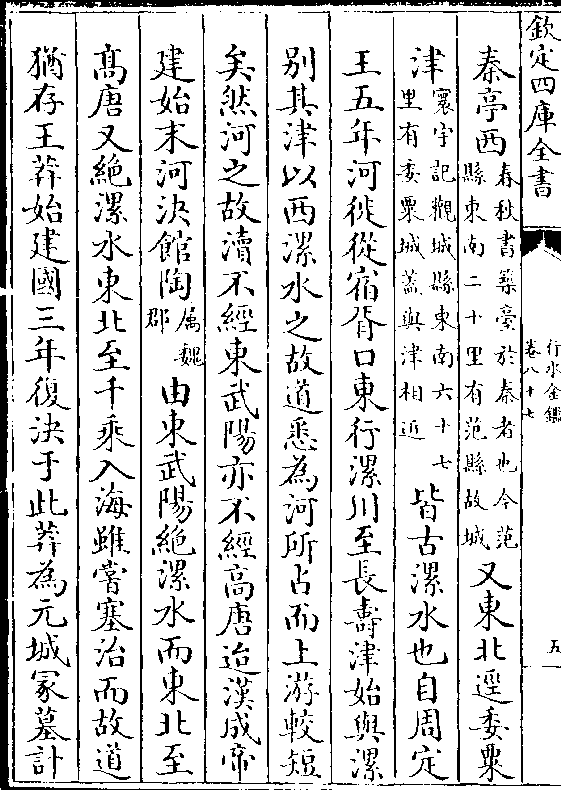 欽定四庫全書
行水金鑑
卷八十七
五
秦亭西春秋書築臺於秦者也今范縣東南二十里有范縣故城又東北逕委粟
津寰宇記觀城縣東南六十七里有委粟城蓋與津相近皆古漯水也自周定
王五年河徙從宿胥口東行漯川至長壽津始與漯
別其津以西漯水之故道悉為河所占而上游較短
矣然河之故瀆不經東武陽亦不經高唐迨漢成帝
建始末河決館陶屬魏郡由東武陽絶漯水而東北至
髙唐又絶漯水東北至千乘入海雖嘗塞治而故道
猶存王莽始建國三年復決于此莽為元城冢墓計